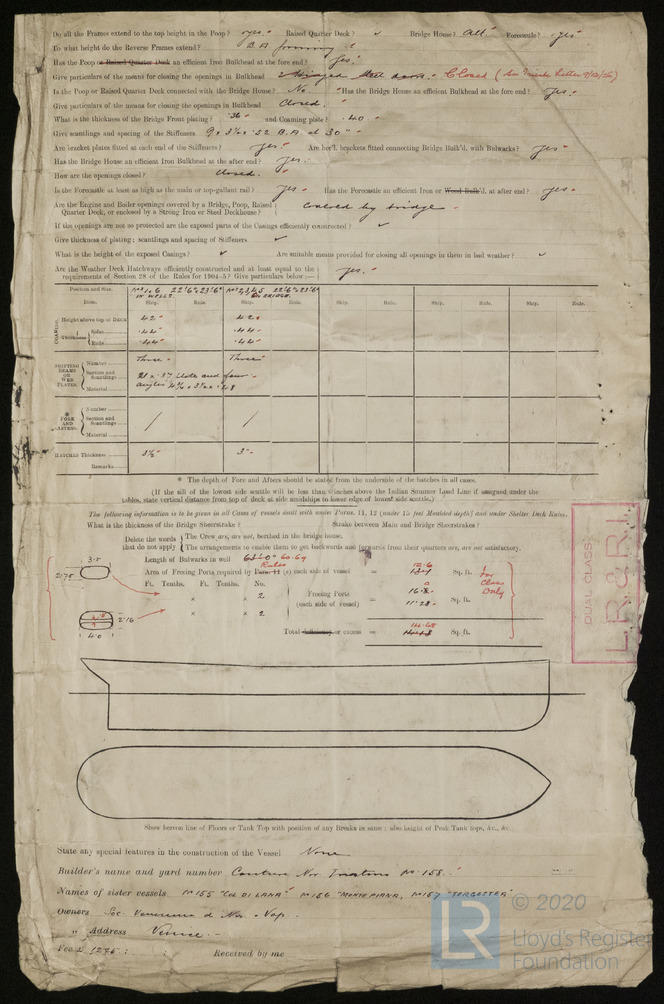 Do all the Frames extend to the top height in the Poop? yes. Raised Quarter Deck? ✓ Bridge House? All Forecastle? yes
To what height do the Reverse Frames extend? B.A. framing
Has the Poop or Raised Quarter Deck an efficient Iron Bulkhead at the fore end? yes.
Give particulars of the means for closing the openings in Bulkhead 2 Hinged steel doors. Closed
Is the Poop or Raised Quarter Deck connected with the Bridge House? No. Has the Bridge House an efficient Bulkhead at the fore end? yes.
Give particulars of the means for closing the openings in Bulkhead Closed.
What is the thickness of the Bridge Front plating? .36 and Coaming plate? .40
Give scantlings and spacing of the Stiffeners 9 x 3½ x .52 B.A. at 30"
Are bracket plates fitted at each end of the Stiffeners? yes. Are hor'l. brackets fitted connecting Bridge Bulk'd. with Bulwarks? yes
Has the Bridge House an efficient Iron Bulkhead at the after end? yes.
How are the openings closed? closed.
Is the Forecastle at least as high as the main or top-gallant rail? yes Has the Forecastle an efficient Iron or Wood Bulk'd. at after end? yes.
Are the Engine and Boiler openings covered by a Bridge, Poop, Raised
Quarter Deck, or enclosed by a Strong Iron or Steel Deckhouse? covered by bridge
If the openings are not so protected are the exposed parts of the Casings efficiently constructed? ✓
Give thickness of plating; scantlings and spacing of Stiffeners ✓
What is the height of the exposed Casings? ✓ Are suitable means provided for closing all openings in them in bad weather? ✓
Are the Weather Deck Hatchways efficiently constructed and at least equal to the
requirements of Section 28 of the Rules for 1904-5? Give particulars below:— yes.
Position and Size. Nos 1 & 6 22'6" x 23'6" Nos 2,3,4,5 22'6" x 23'6"
IN WELLS. ON BRIDGE.
Item. Ship. Rule. Ship. Rule. Ship. Rule. Ship. Rule. Ship. Rule.
COAMING. Height above top of Deck 42" 42"
Thickness Sides .44" .44"
Ends .44" .44"
SHIFTING BEAMS OR WEB PLATES. Number Three Three
Section and Scantlings
Material
FORE AND AFTERS. Number
Section and Scantlings
Material
HATCHES Thickness 3½" 3"
Remarks
* The depth of Fore and Afters should be stated from the underside of the hatches in all cases.
(If the sill of the lowest side scuttle will be less than 6 inches above the Indian Summer Load Line if assigned under the
tables, state vertical distance from top of deck at side amidships to lower edge of lowest side scuttle.)
The following information is to be given in all Cases of vessels dealt with under Paras. 11, 12 (under 15 feet Moulded depth) and under Shelter Deck Rules.
What is the thickness of the Bridge Sheerstrake? Strake between Main and Bridge Sheerstrakes?
Delete the words that do not apply
The Crew are, are not, berthed in the bridge house.
The arrangements to enable them to get backwards and forwards from their quarters are, are not satisfactory.
Length of Bulwarks in well
Rules
Area of Freeing Ports required by Para. 11 (a) each side of vessel = 12.6 Sq. ft.
Ft. Tenths. Ft. Tenths. No.
× × 2
× × 2
Freeing Ports (each side of vessel) = Sq. ft.
11.28
Total deficiency or excess = 14.68 Sq. ft.
For Class Only
3.5
2.75
2.16
4.0
DUAL CLASS
L.R & R.I.
Show hereon line of Floors or Tank Top with position of any Breaks in same; also height of Peak Tank tops, &c., &c.
State any special features in the construction of the Vessel None
Builder's name and yard number Cantiere Nav. Triestino No. 158.
Names of sister vessels No 155 "COL DI LANA" No 156 "MONTE PIANA" No 157
Owners Soc. Veneziana di Nav. Vap.
„ Address Venice.
Fee £ 1275 : : Received by me
© 2020
LR
Lloyd's Register
Foundation